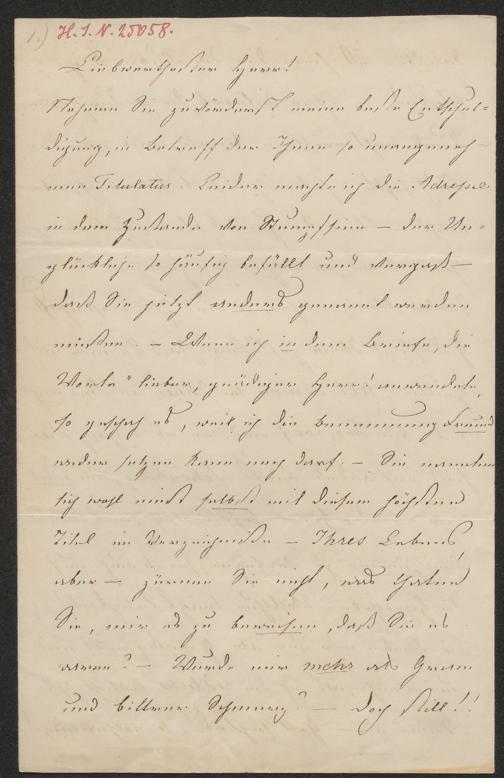 1.) H. I. N. 25058.
Liebwerthester Herr!
Nehmen Sie zuvörderst meine beste Entschul-
digung, in Betreff der Ihnen so unangeneh-
men Titulatur. Leider machte ich die Adresse
in dem Zustande von Stumpfsinn — der Un-
glückliche so häufig befällt und vergaß —
daß Sie jetzt anders genannt werden
müssen. — Wenn ich in dem Briefe, die
Worte "lieber, gnädiger Herr! anwendete,
so geschah es, weil ich die Benennung Freund
weder setzen kann noch darf. — Sie nannten
sich wohl einst selbst mit diesem höchsten
Titel im Verzeichniße — Ihres Lebens,
aber — zürnen Sie nicht, was thaten
Sie, mir es zu beweisen, daß Sie es
waren? — Wurde mir mehr als Gram
und bittrer Schmerz? — doch still!!